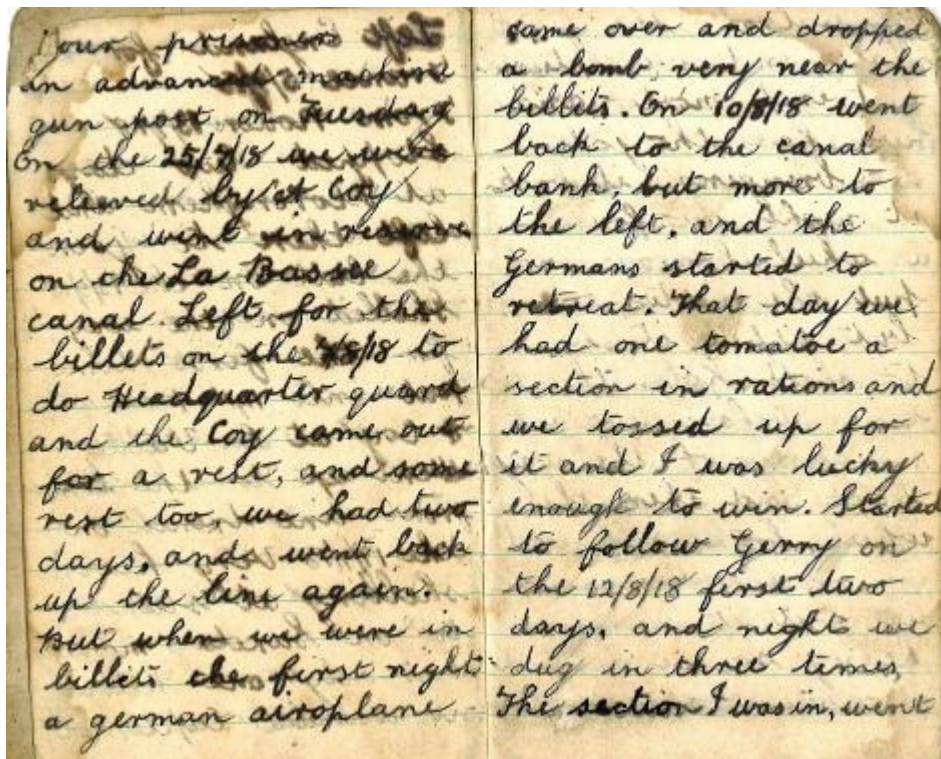 four prisoners
in advanced machine
gun post on Tuesday
On the 25/7/18 we were
releived by A Coy
and went in reserve
on the La Bassee
canal. Left for the
billets on the 7/8/18 to
do Headquarter guard
and the Coy came out
for a rest, and some
rest too, we had two
days, and went back
up the line again.
But when we were in
billits the first night
a german airoplane
came over and dropped
a bomb very near the
billits. On 10/8/18 went
back to the canal
bank. but more to
the left, and the
Germans started to
retreat. That day we
had one tomatoe a
section in rations and
we tossed up for
it and I was lucky
enough to win. Started
to follow Gerry on
the 12/8/18 first two
days, and night we
dug in three times,
The section I was in, went